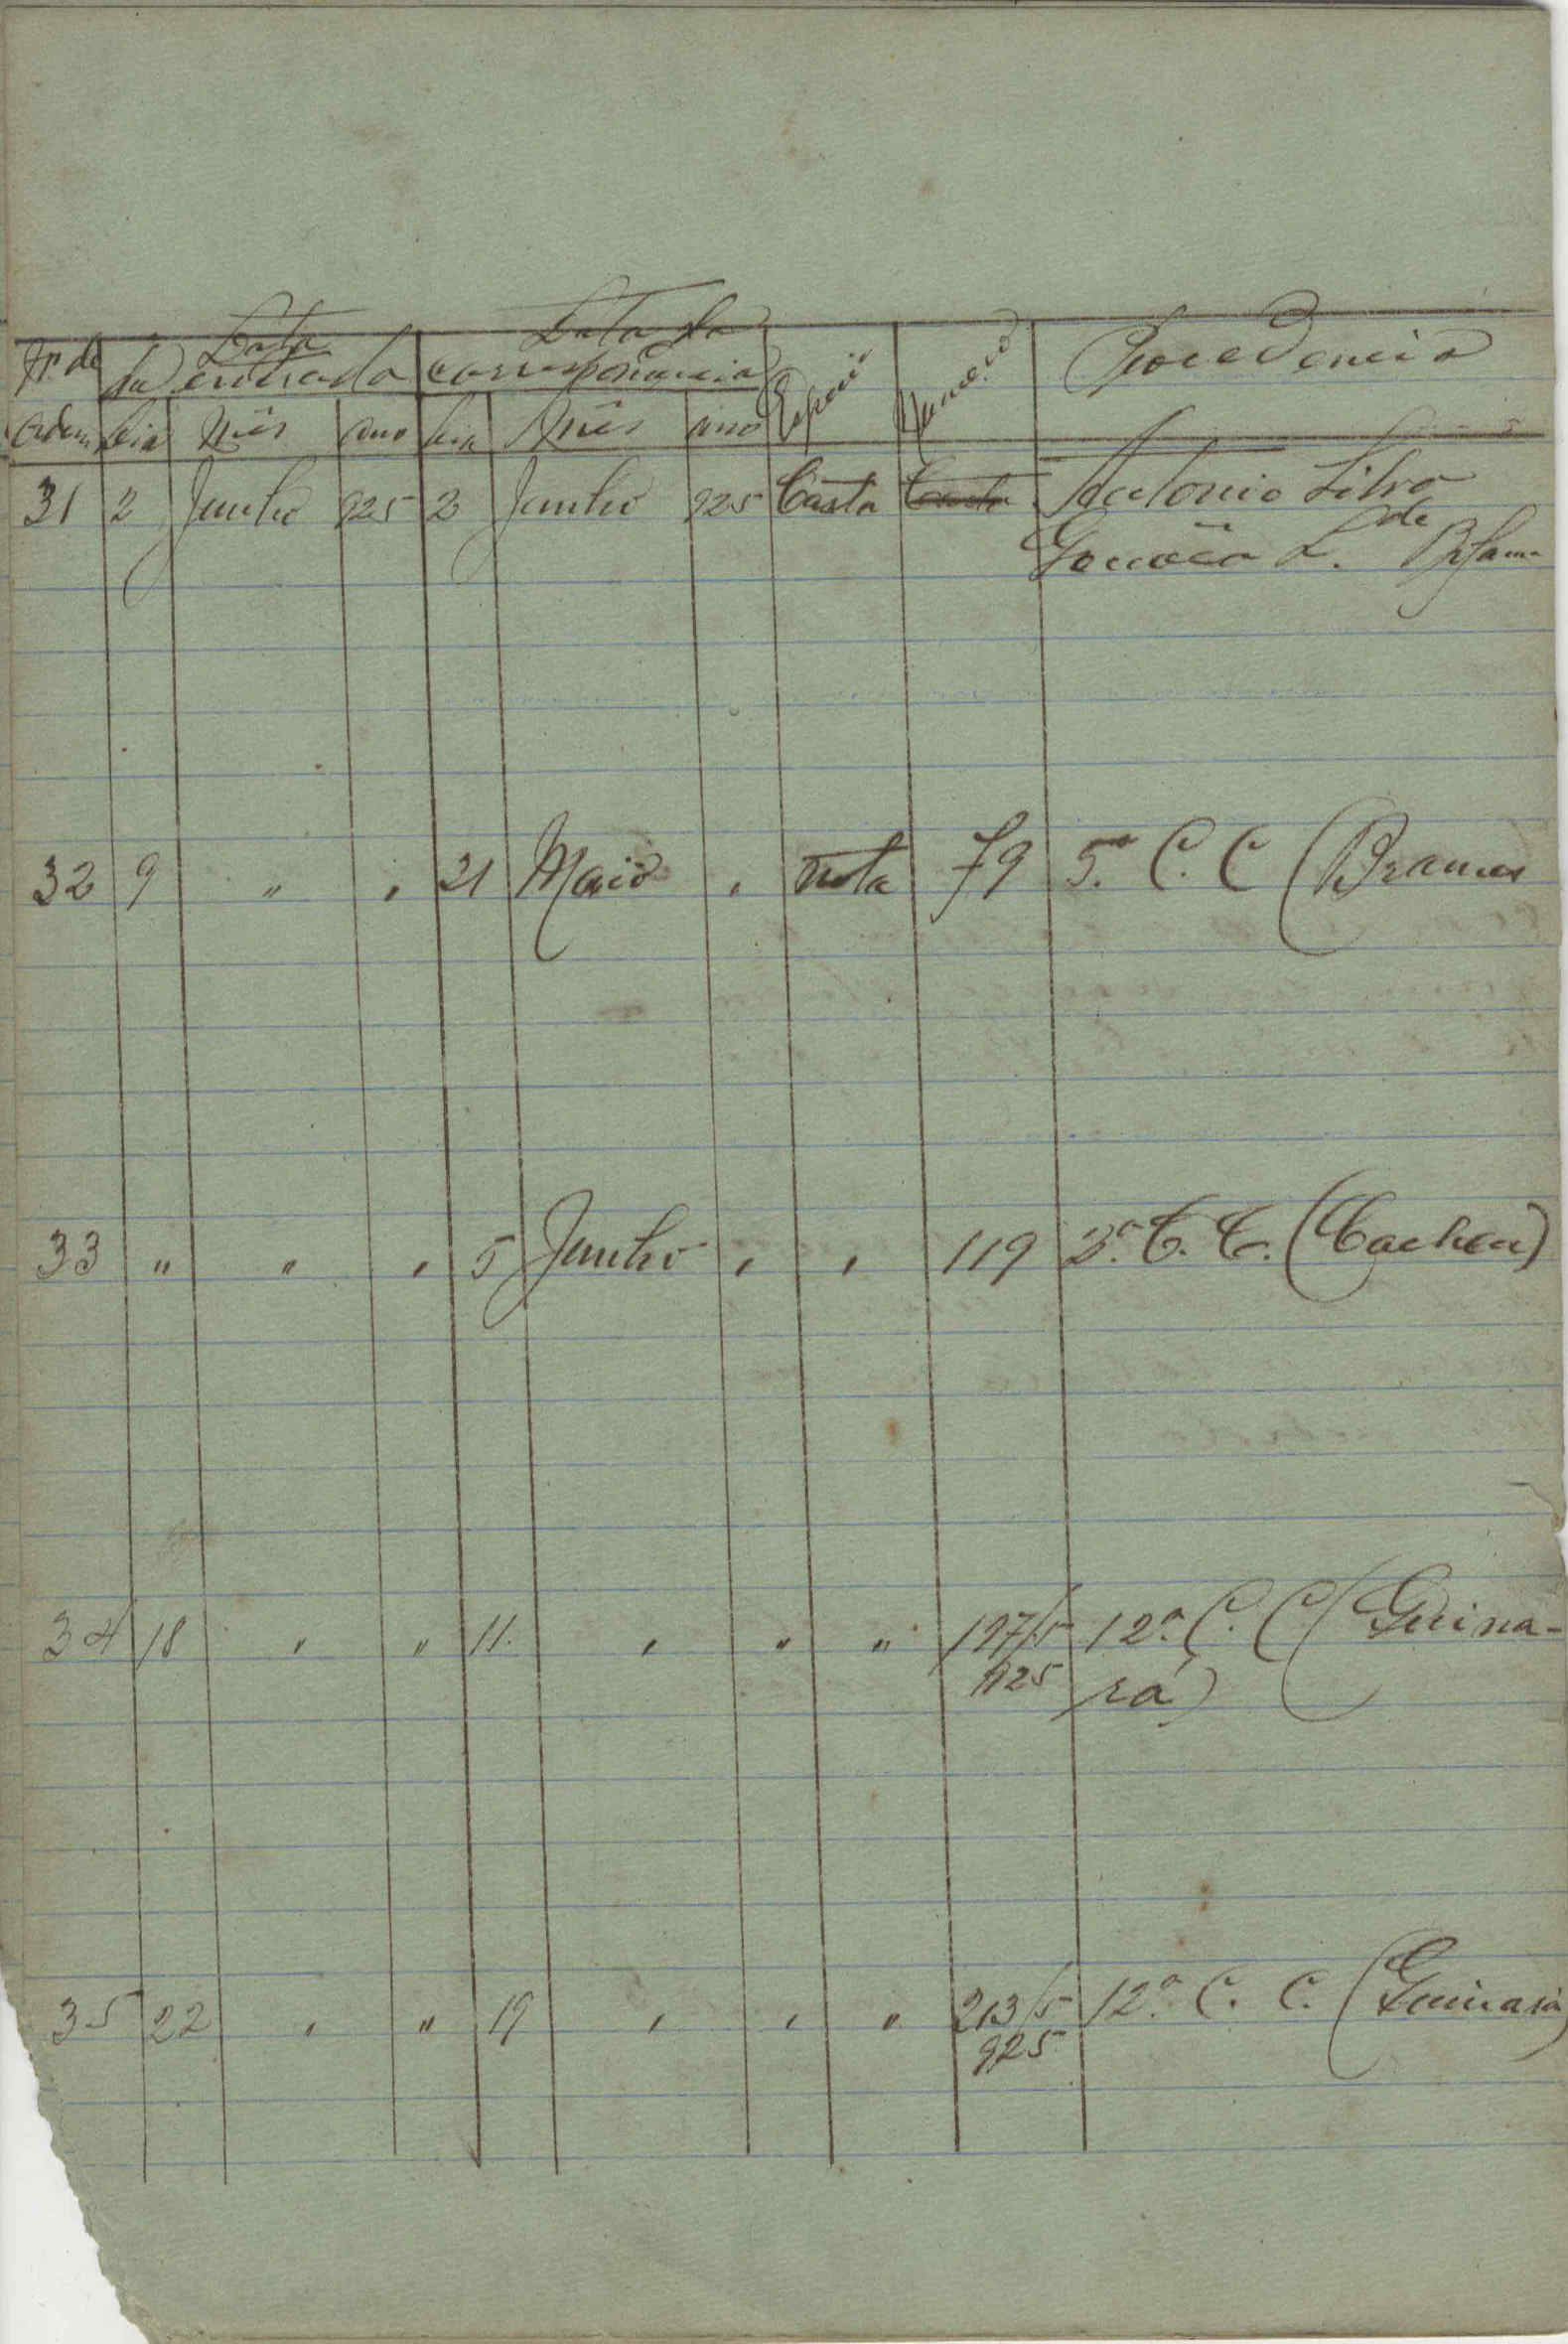 Nº de Data da entrada Data da correspondencia Especie Numero Procedencia
ordem dia Mês ano dia Mês ano
31 2 Junho 925 2 Junho 925 Carta Carta Antonio Silva
Gouvêa L. de Bafama
32 9 " " 21 Maio " nota 79 5ª C. C (Brames
33 " " " 5 Junho " " 119 3ª C. C. (Cacheu)
34 18 " " 11. " " " 197/5 12ª C. C (Guina-
925 rá)
35 22 " " 19 " " " 213/5 12ª C. C. (Guinará)
925